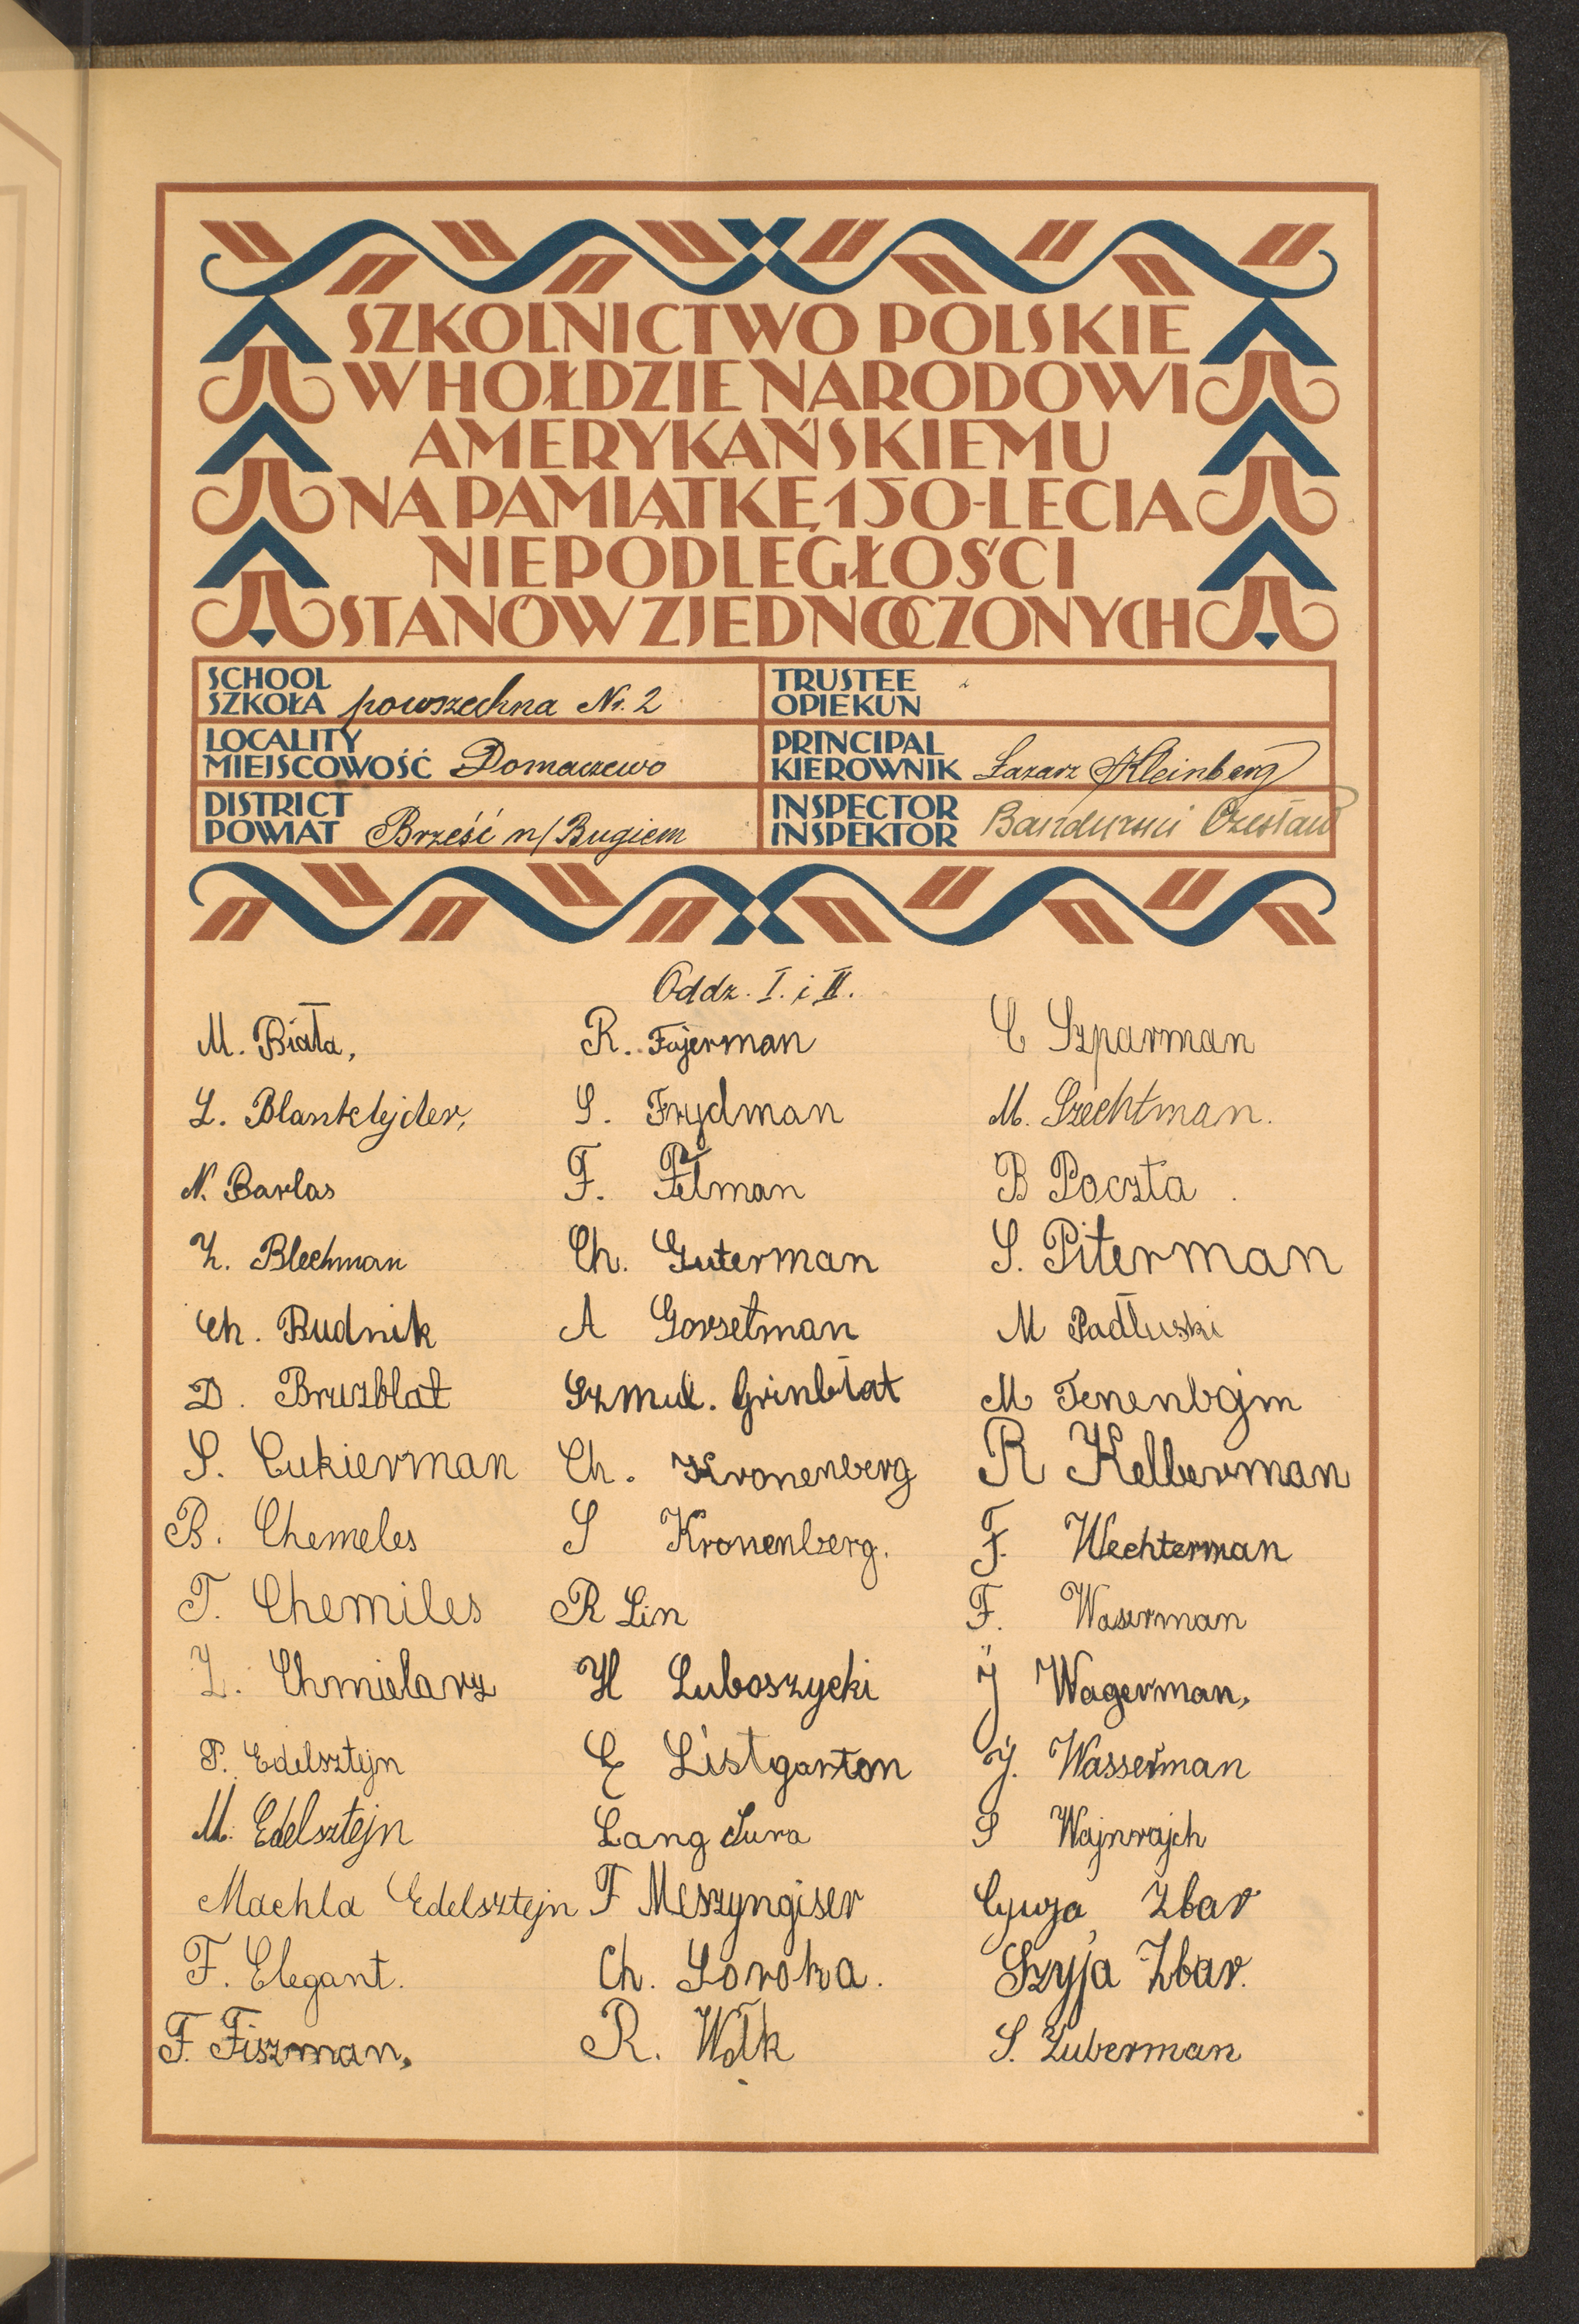 SZKOLNICTWO POLSKIE
W HOŁDZIE NARODOWI
AMERYKAŃSKIEMU
NA PAMIĄTKĘ 150-LECIA
NIEPODLEGŁOŚCI
STANÓW ZJEDNOCZONYCH
SCHOOL
SZKOŁA powszechna Nr. 2
TRUSTEE
OPIEKUN
LOCALITY
MIEJSCOWOŚĆ Domaczewo
PRINCIPAL
KIEROWNIK Łazarz Kleinberg
DISTRICT
POWIAT Brześć n/Bugiem
INSPECTOR
INSPEKTOR Bandurski Czesław
Oddz. I. i II.
M. Biała,
L. Blanklejder,
N. Barlas
Ch. Blechman
Ch. Rudnik
D. Bruzblat
S. Cukierman
B. Chemeles
T. Chemiles
L. Chmielarz
P. Edelsztejn
M. Edelsztejn
Machla Edelsztejn
F. Elegant.
F. Fiszman,
R. Fajerman
S. Frydman
F. Felman
Ch. Guterman
A Gorsetman
Szmul. Grinblat
Ch. Kronenberg
S Kronenberg.
R Lin
H Luboszycki
E Listgarton
Lang Sura
F Meszyngiser
Ch. Soroka.
R. Wołk
C Szparman
M. Szechtman.
B Poczta.
S. Piterman
M Padłuski
M Tenenbojm
R Kelberman
F. Wechterman
F. Waserman
J Wagerman,
J. Wasserman
S Wajnrajch
Cywja Zbar
Szyja Zbar.
S. Zuberman